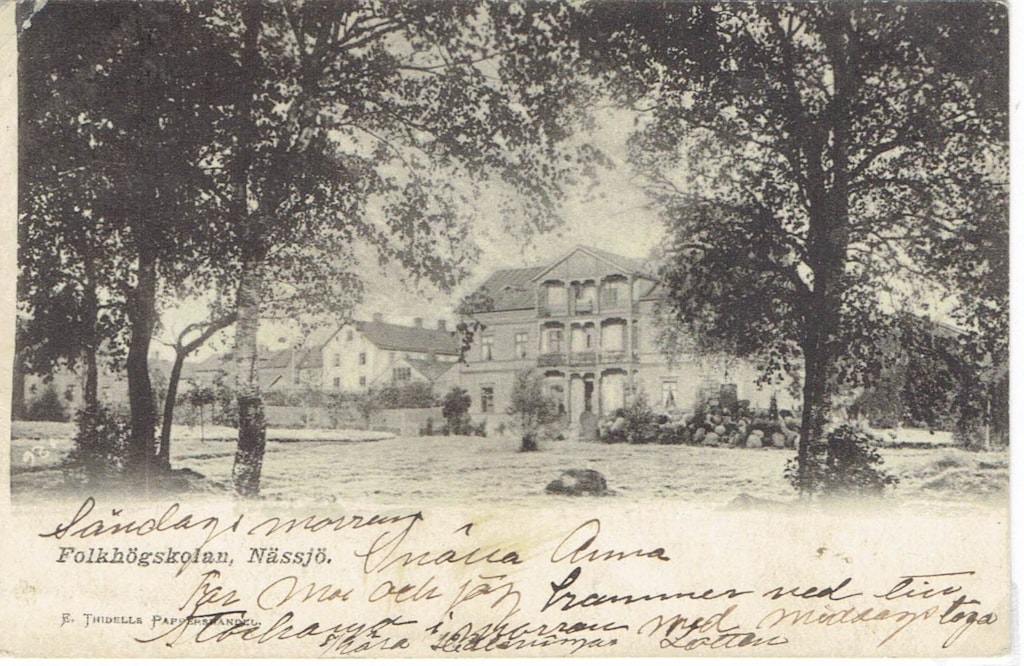 Söndags morron
Folkhögskolan, Nässjö.
Snälla Anna
Far Mor och jag kommer ned till
E. Thidells Pappershandel.
i morron med middagståga
Kära Hälsningar Lotten